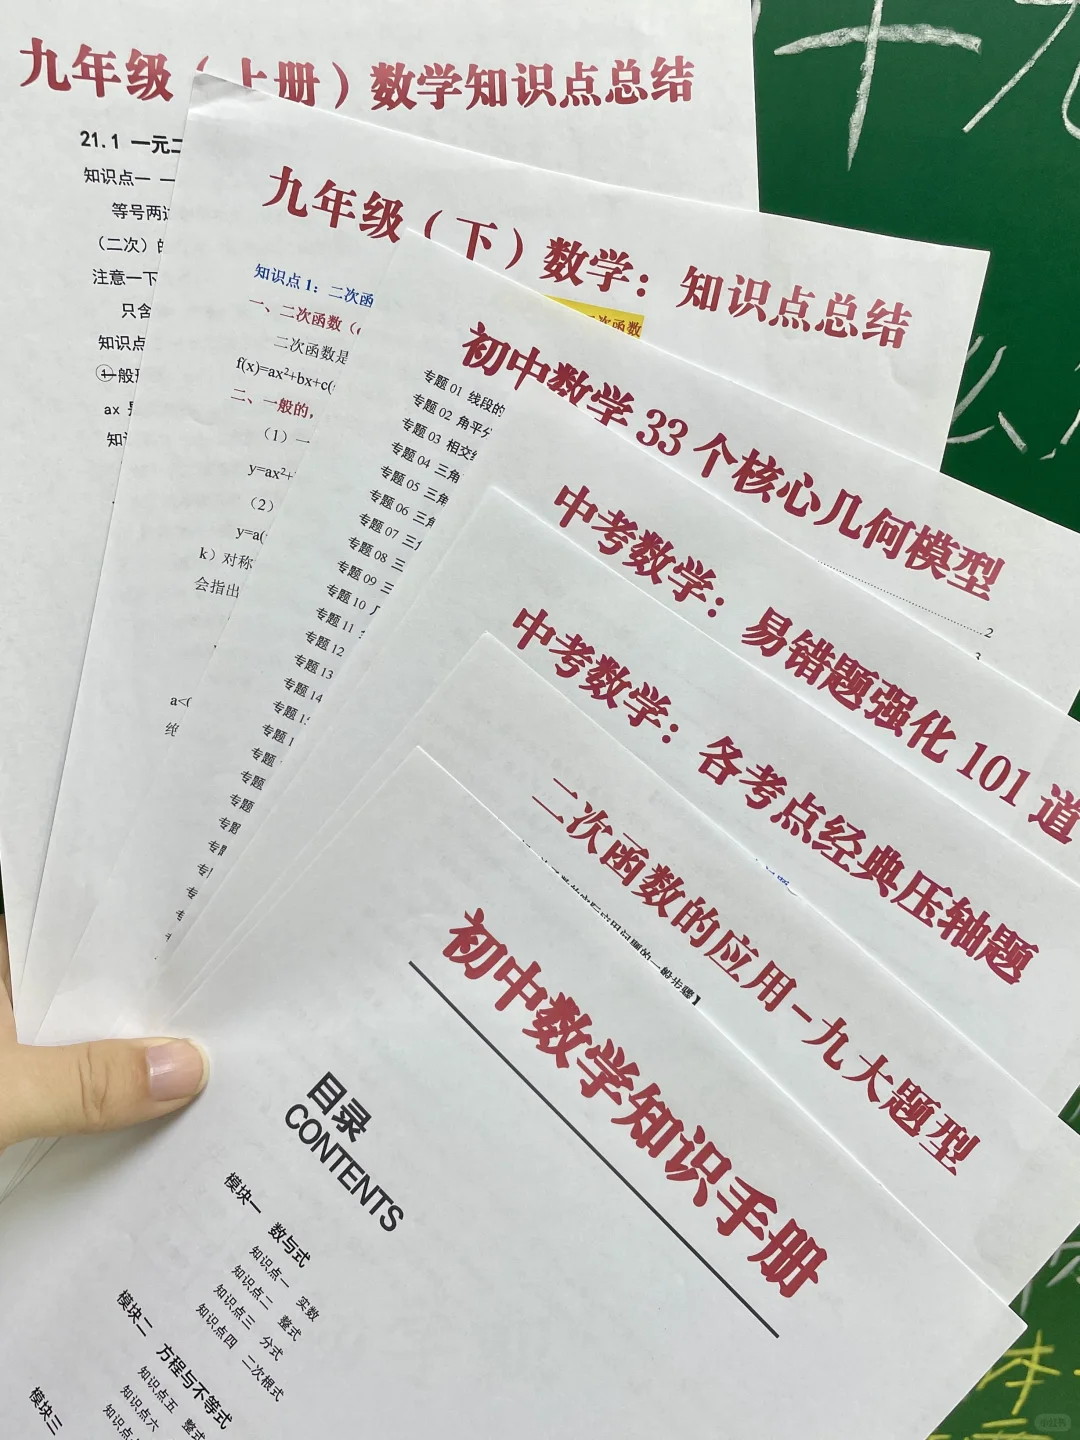 九年级（上册）数学知识点总结
21.1 一元二
知识点一 一
等号两边
（二次）的
注意一下
只含
知识点
①一般形
ax 是
知识
九年级（下）数学：知识点总结
知识点 1：二次函
二次函数
一、二次函数（
二次函数是
f(x)=ax²+bx+c(
二、一般的，
（1）一
y=ax²+
（2）
y=a(
k）对称
会指出
a<(
初中数学 33 个核心几何模型
专题 01 线段的
专题 02 角平分
专题 03 相交线
专题 04 三角
专题 05 三角
专题 06 三角
专题 07 三角
专题 08 三
专题 09 三
专题 10
专题 11
专题 12
专题 13
专题 14
专题 1
专题 1
专题
专题
专题
专题
专
专
专
2
3
中考数学：易错题强化 101 道
中考数学：各考点经典压轴题
二次函数的应用-九大题型
实际应用问题的一般步骤】
初中数学知识手册
目录
CONTENTS
模块一 数与式
知识点一 实数
知识点二 整式
知识点三 分式
知识点四 二次根式
模块二 方程与不等式
知识点五 整式
知识点六
知识点
模块三
小红书